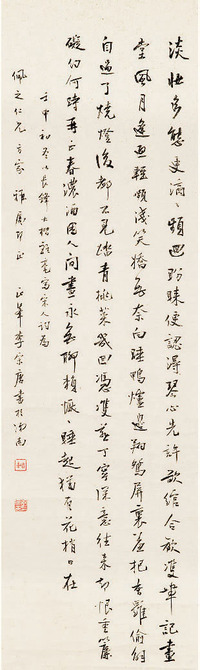 淡妝多態更滴滴頻迴眄睞便認得琴心先許欲綰合歡雙帶記畫
堂風月逢迎輕顰淺笑嬌無奈向睡鴨爐邊翔鴛屏裏羞把香羅偷解
自過了燒燈後都不見踏青挑菜幾回憑雙燕丁寧深意往來却恨重簾
礙約何時再正春濃酒困人閒晝永無聊賴懨懨睡起猶有花梢日在
壬申初冬以長鋒大楷毫寫宋人詞為
佩之仁兄方家雅屬即正
李宗唐書於